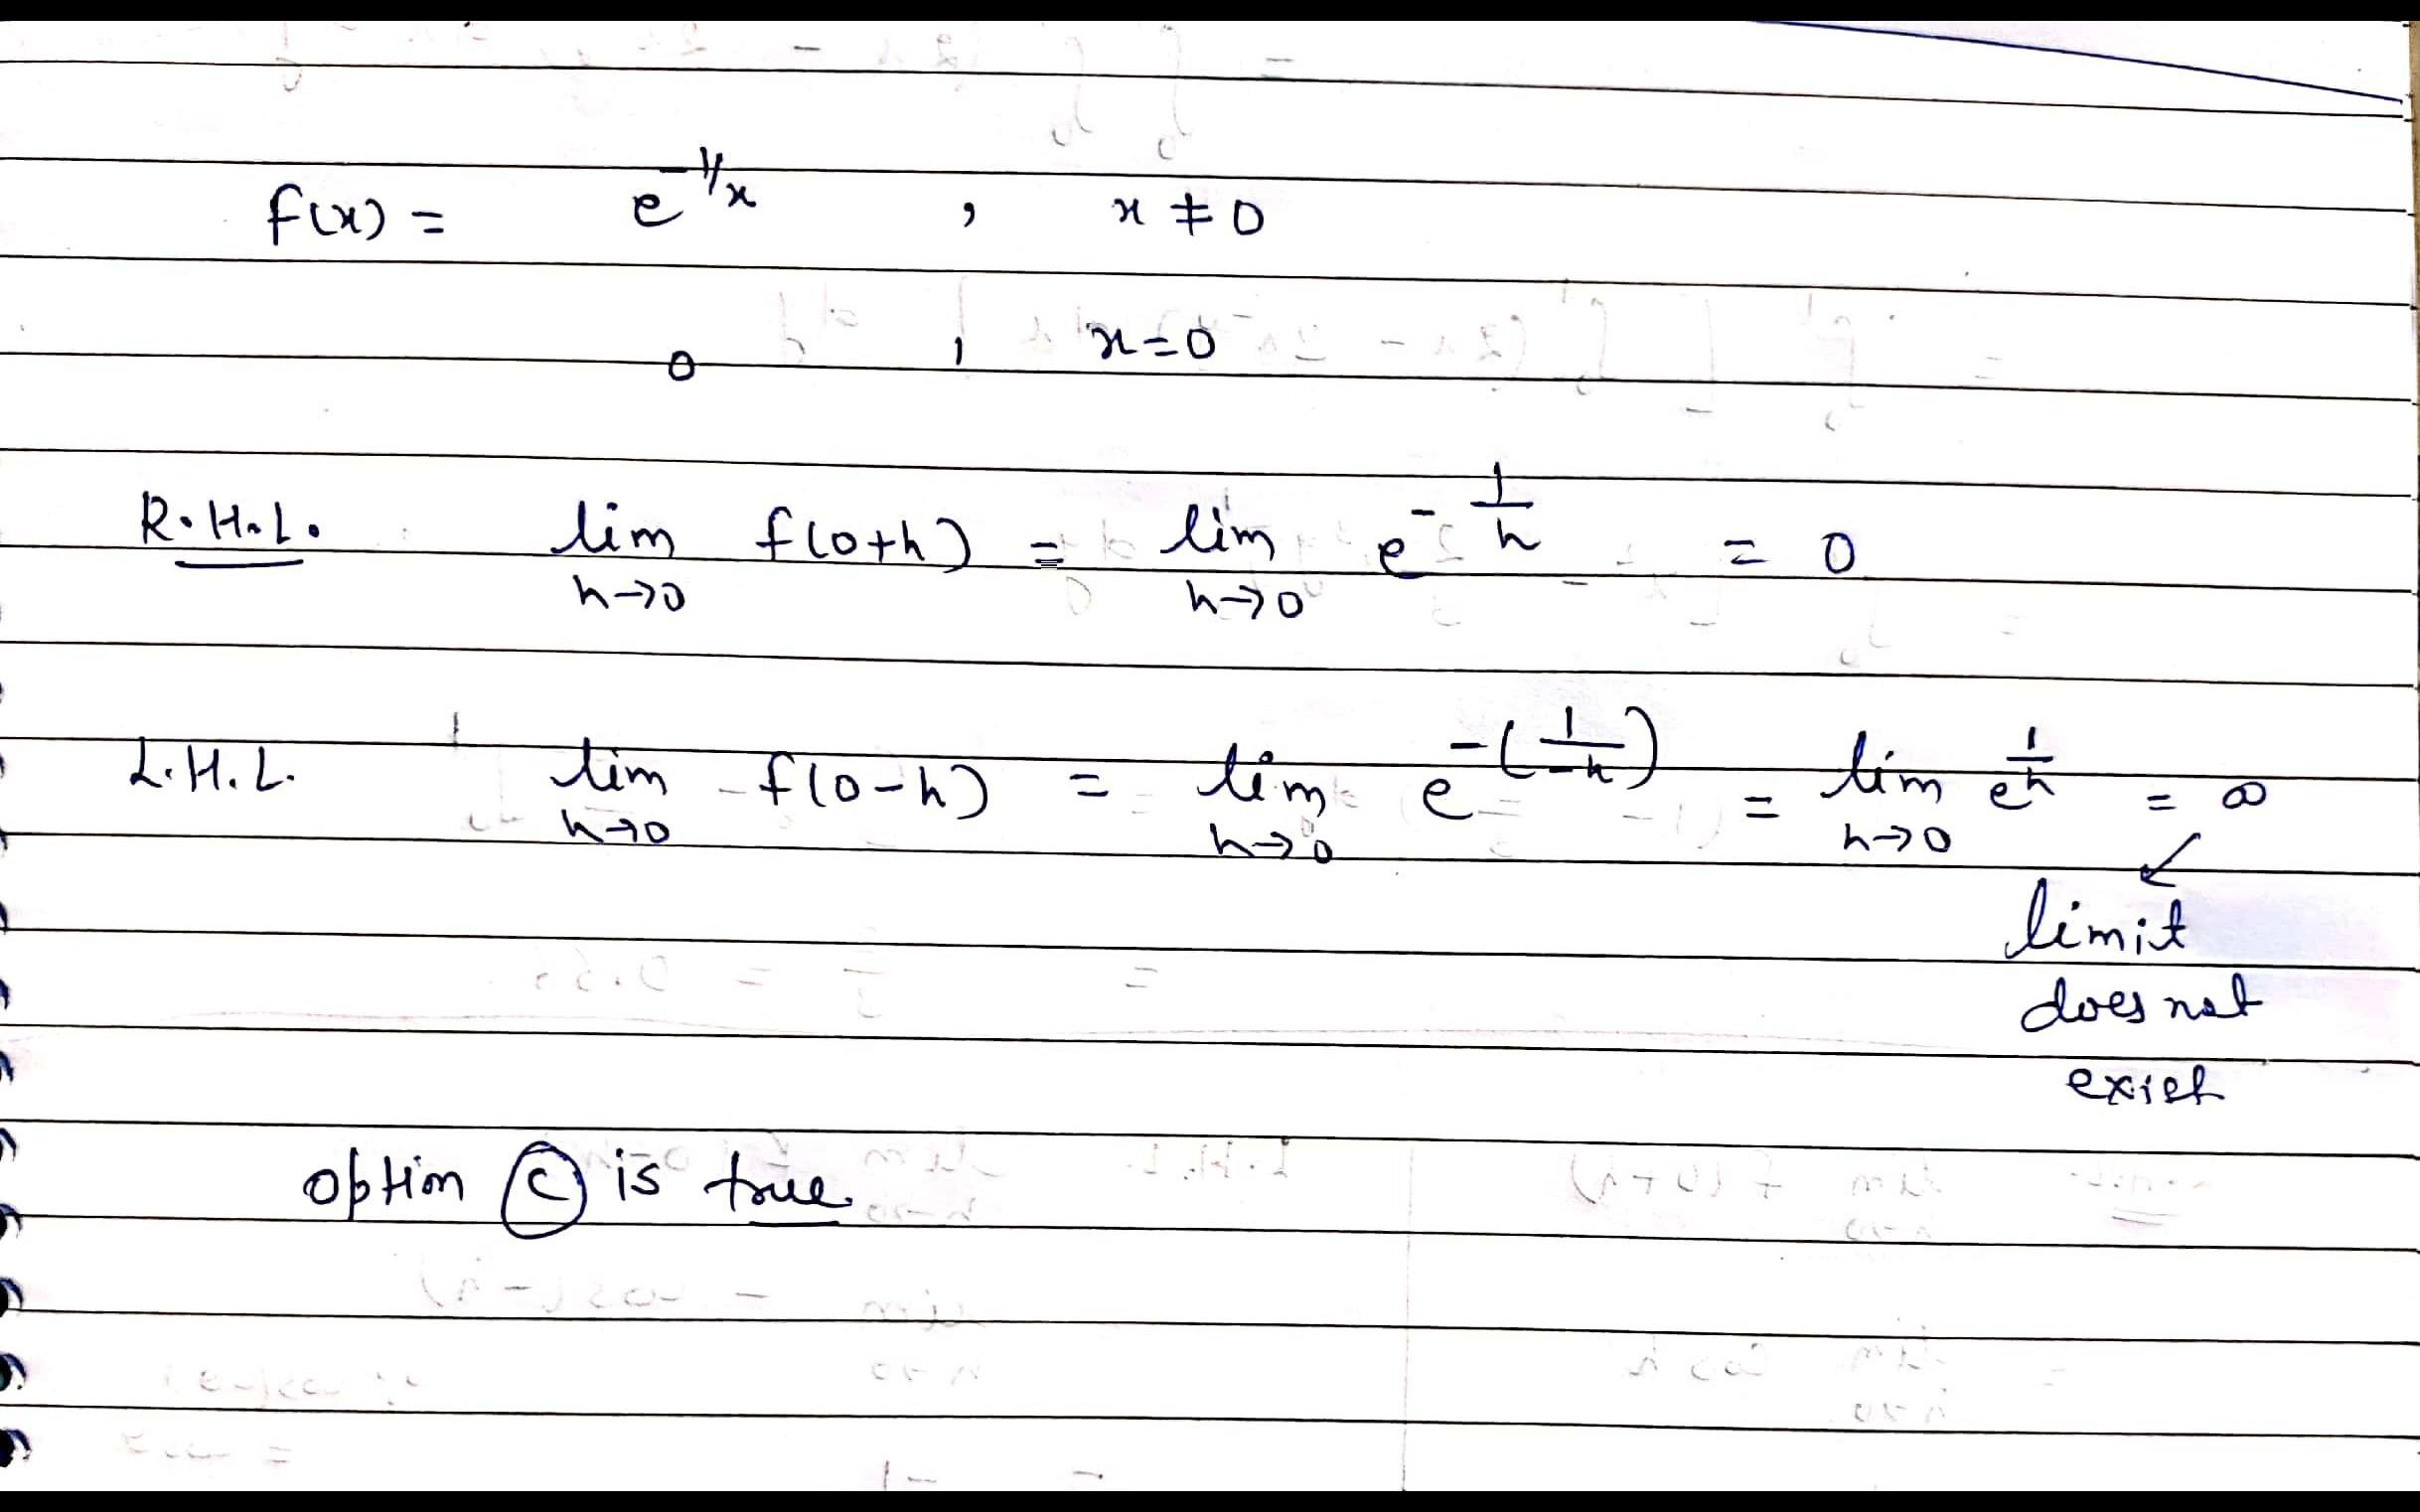 f(x) = e^{-1/x} , x ≠ 0
0 , x = 0
R.H.L. lim_{h→0} f(0+h) = lim_{h→0} e^{-1/h} = 0
L.H.L. lim_{h→0} f(0-h) = lim_{h→0} e^{-(1/-h)} = lim_{h→0} e^{1/h} = ∞
limit
does not
exist
option (C) is true